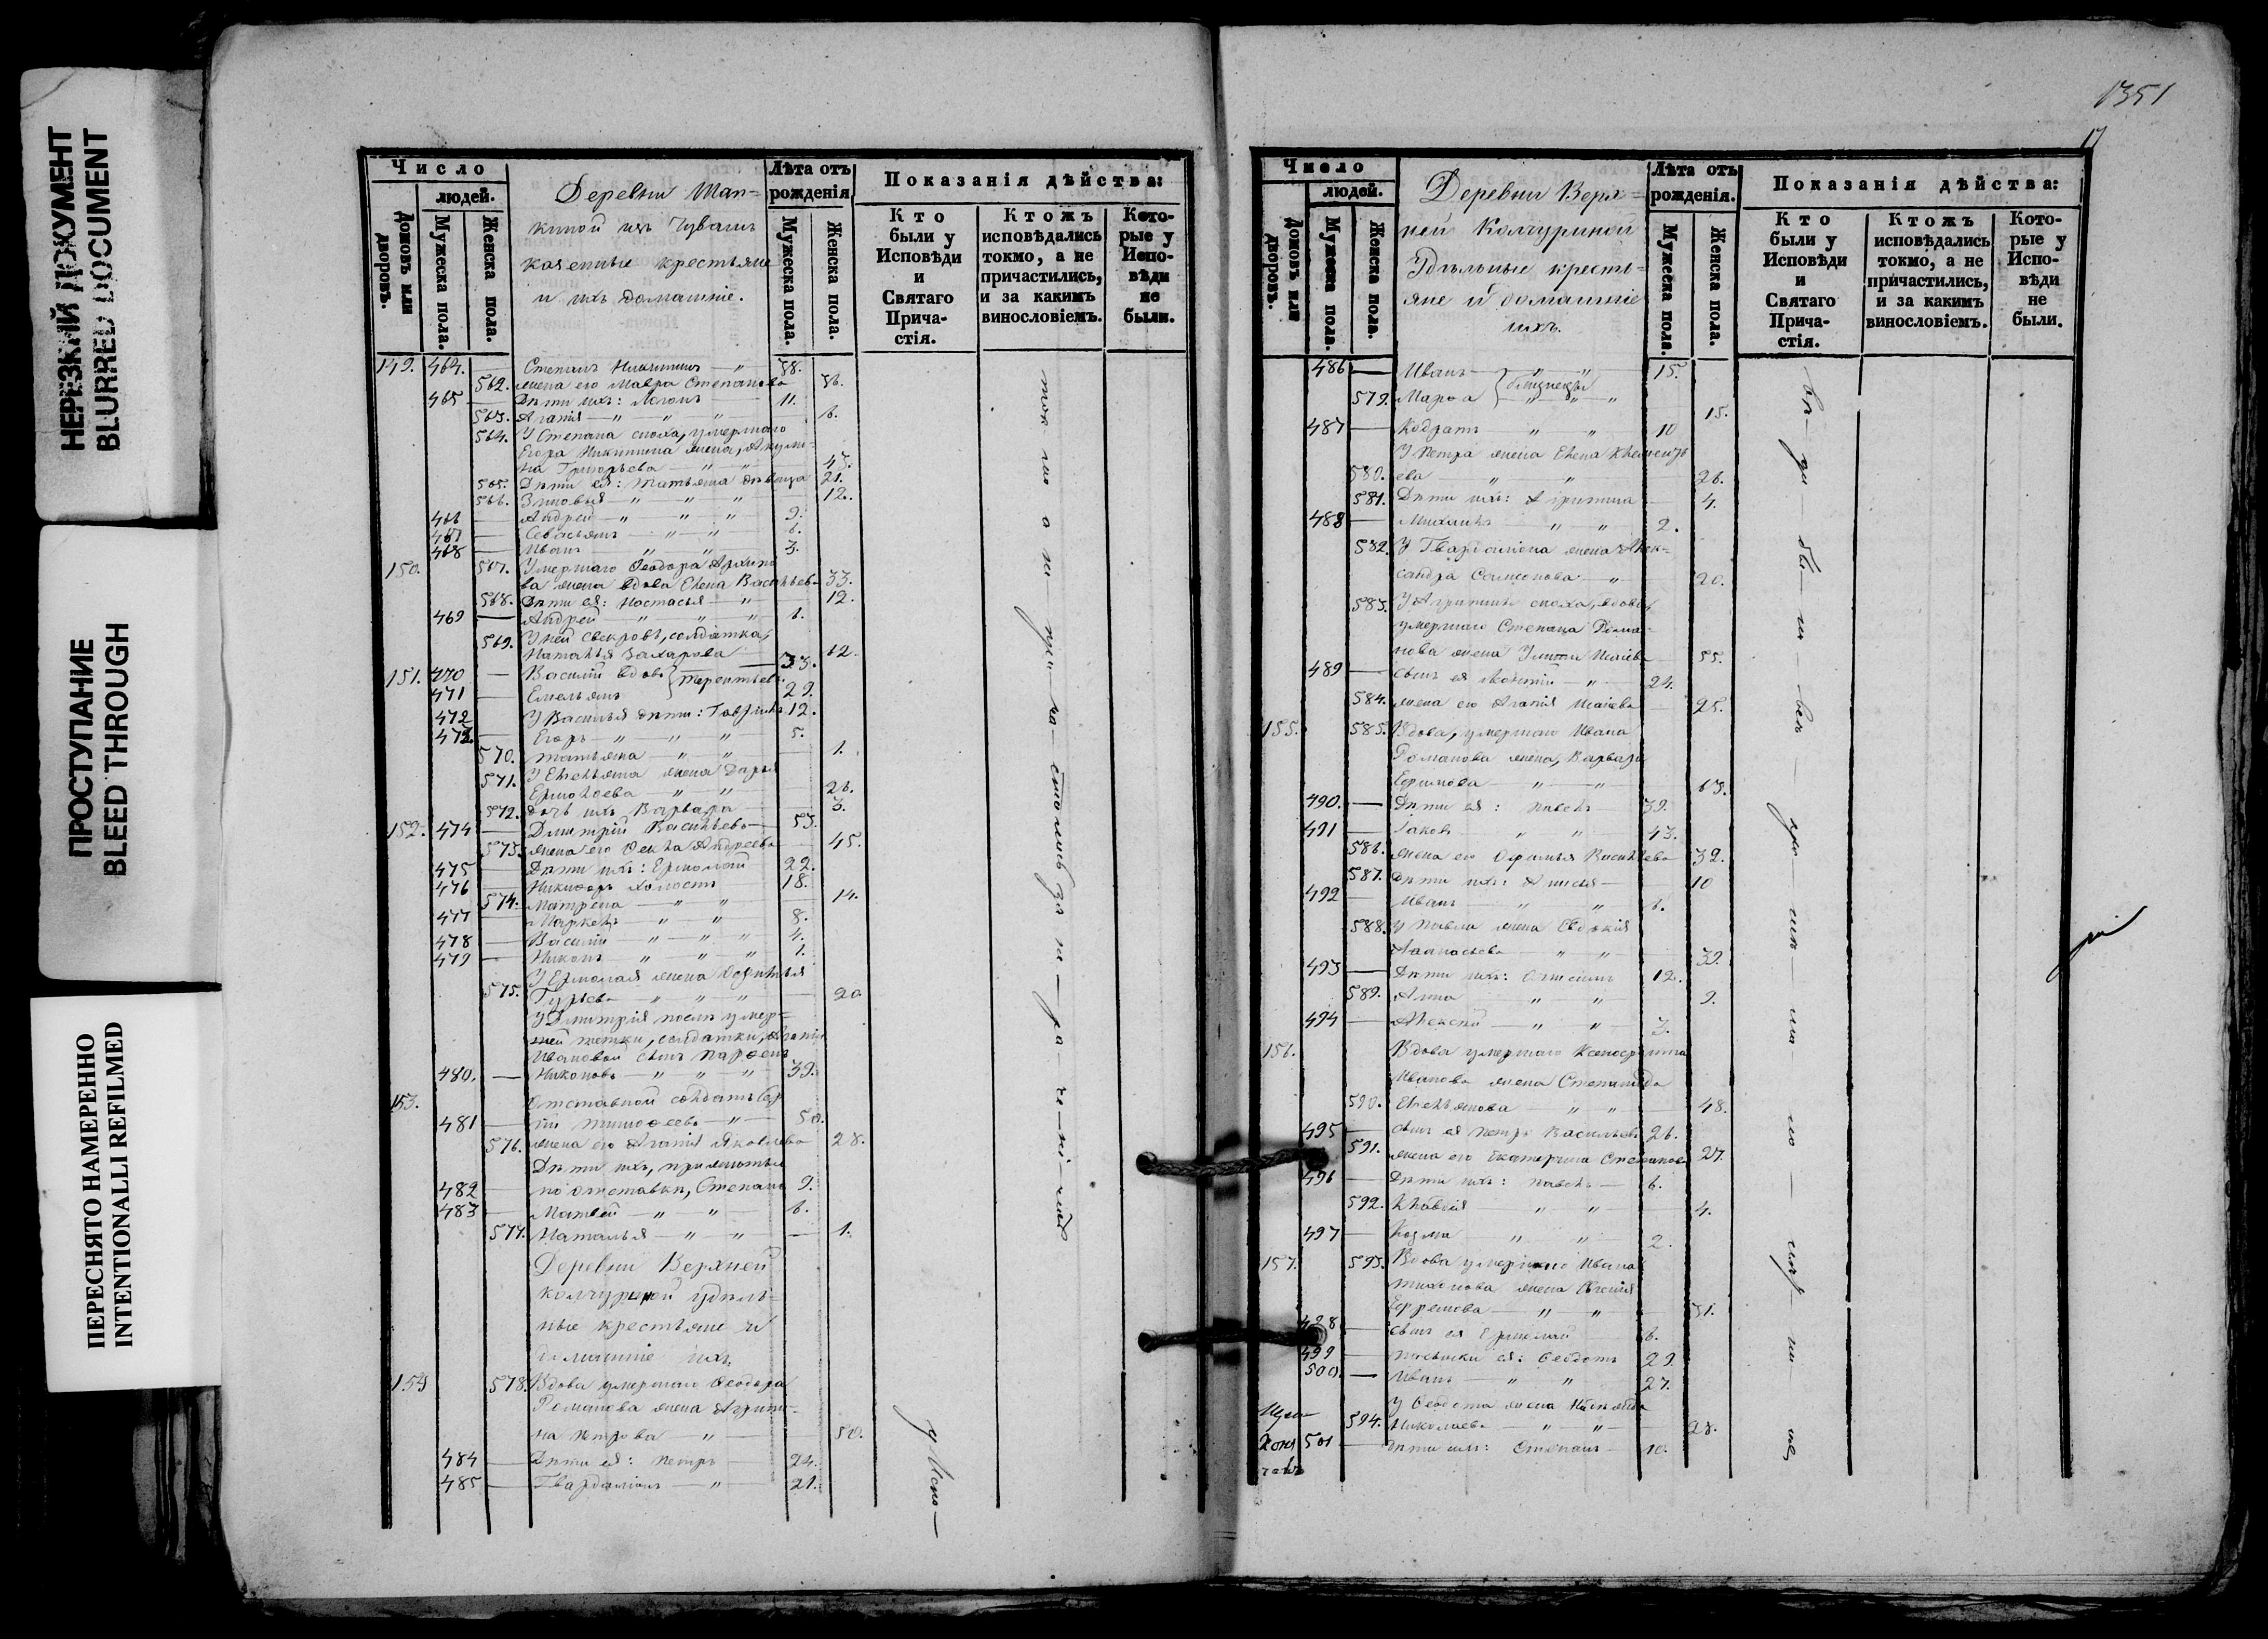 НЕРЕЗКИЙ ДОКУМЕНТ
BLURRED DOCUMENT
ПРОСТУПАНИЕ
BLEED THROUGH
ПЕРЕСНЯТО НАМЕРЕННО
INTENTIONALLI REFILMED
Число
людей.
Домовъ или дворовъ.
Мужеска пола.
Женска пола.
Деревни Шап=
киной изъ Чувашъ
казенные крестьяне
и ихъ домашніе.
Лѣта отъ рожденія
Мужеска пола.
Женска пола.
Показанія дѣйства:
Кто были у Исповѣди и Святаго Причастія.
Ктожъ исповѣдались токмо, а не причастились, и за какимъ винословіемъ.
Которые у Исповѣди не были.
149. 464. — Степанъ Никитинъ — 58.
562. жена его Мавра Степанова 56.
465 — Дѣти ихъ: — 11.
563. Агапія — " — " 6.
564. У Степана сноха, умершаго
Егора Никитина жена, Акули-
на Григорьева — " — " 43.
565. Дѣти ея: Татьяна дѣвица 21.
566. Зиновья — " — " — " 12.
466 — Андрей — " — " — " 9.
467 — Севастьянъ — " — " 6.
468 — Иванъ " — " 3.
150. 567. Умершаго Ѳеодора Архипо
ва жена вдова Елена Васильева 33.
568. Дѣти ея: Настасья — " 12.
469 — Андрей — " — " — " 6.
569. У ней свекровь, солдатка,
Наталья Захарова 62.
151. 470 — Василій вдовъ } Терентьевы 33.
471 — Емельянъ 29.
472 У Василья дѣти: Гавріилъ 12.
473. — Егоръ — " — " — " 5.
570. Татьяна — " — " 1.
571. У Емельяна жена Дарья
Ермолаева — " — " 26.
572. дочь ихъ Варвара 3.
152. 474 — Дмитрій Васильевъ 53.
573. жена его Ѳекла Андреева 45.
475 — Дѣти ихъ: Ермолай 22.
476 — Никифоръ холостъ 18.
574. Матрена — " — " 14.
477 — Маркелъ — " — " 8.
478 — Василій — " — " — " 4.
479 — Никонъ — " — " — " 1.
У Ермолая жена
575. Гурьева — " — " — " 20
У Дмитрія послѣ умер=
шей тетки, солдатки, Агапіи
Ивановой сынъ Парѳенъ
480. — Никоновъ — " — " — " 39.
153. Отставной солдатъ
481 — Тимоѳеевъ — " 50.
576. жена его Агапія Яковлева 28.
Дѣти ихъ, прижитые
482 — по отставкѣ, Степанъ 9.
483 — Матвей — " — " 6.
577. Наталья — " — " 1.
Деревни Верхней
Колчуриной удѣль=
ные крестьяне и
домашніе ихъ.
154 578. Вдова умершаго Ѳеодора
Романова жена Агрипи-
на Петрова — " 50.
484 — Дѣти ея: Петръ — 24.
485 — Гвардаліонъ — " 21.
у Испо —
1351
17
Число
людей.
Домовъ или дворовъ.
Мужеска пола.
Женска пола.
Деревни Верх=
ней Колчуриной
Удѣльные кресть=
яне и домашніе
ихъ.
Лѣта отъ рожденія.
Мужеска пола.
Женска пола.
Показанія дѣйства:
Кто были у Исповѣди и Святаго Причастія.
Ктожъ исповѣдались токмо, а не причастились, и за какимъ винословіемъ.
Которые у Исповѣди не были.
486 — Иванъ — " — " 15.
} близнецы
579. Марѳа — " — " — " 15.
487 — Кодратъ " " 10
У Петра жена Елена Клементь
580. ева " " 26.
581. Дѣти ихъ: Агрипина 4.
488 — Михаилъ — " — " 2.
582. У Гвардаліона жена Алек=
сандра Самсонова — " 20.
583. У Агрипины сноха, вдова,
умершаго Степана Рома-
нова жена Исаіева 55.
489 — сынъ ея Леонтій — " 24.
584. жена его Агапія Исаіева 25.
155. 585. Вдова, умершаго Ивана
Романова жена, Варвара
Ефимова — " — " 63.
490. — Дѣти ея: Павелъ 39.
491 — Іаковъ — " " 43.
586. жена его Ѳфимья Васильева 32.
587. Дѣти ихъ: Анисья 10
492 — Иванъ — " " 6.
588. У Павла жена Евдокія
Аѳанасьева — " " 39.
493 — Дѣти ихъ: 12.
589. Анна " " 9.
494 — Алексѣй — " " 3.
156. Вдова умершаго Ксенофонта
Иванова жена Степанида
590. Емельянова — " " 48.
495 — сынъ ея Петръ Васильевъ 26.
591. жена его Екатерина Степанова 27.
496 — Дѣти ихъ: Павелъ — 6.
592. Клавдія " " 4.
497 — Козма " " 2.
157. 593. Вдова умершаго Ивана
Тихонова жена Евгенія
Ефремова — " " 51.
498 — сынъ ея Ермолай 6.
499 — пасынки ея: Ѳеодотъ 29.
500. — Иванъ — " " 27.
У Ѳеодота жена
594. Николаева — " — " 28.
501 — дѣти ихъ: Степанъ — 10.